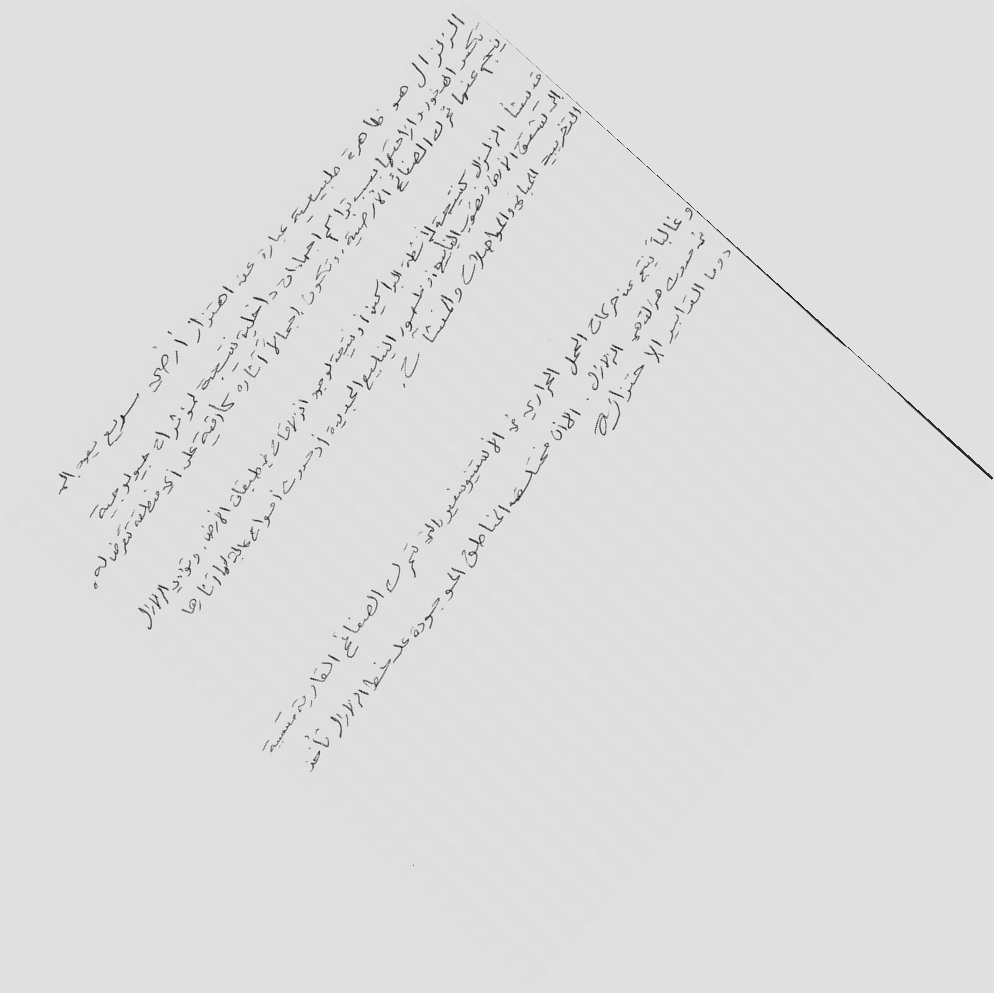 الزلزال هو ظاهرة طبيعية عبارة عن اهتزاز أرضي سريع يعود إلى
تكسر الصخور والاحتها بسبب تراكم اجهادات داخلية نتيجة لمؤثرات جيولوجية
ينجم عنها تحرك الصفائح الأرضية. وتكون إجمالاً آثاره كارثية على أي منطقة تتعرض له.
قد ينشأ الزلزال كنتيجة لأنشطة البراكين أو نتيجة لوجود انزلاقات في طبقات الأرض. وتؤدي الزلازل
إلى تشقق الأرض ونضوب الينابيع أو ظهور الينابيع الجديدة أو حدوث أمواج عالية لها آثارها
التخريبية المباني والمواصلات والمنشآت.
وغالباً ينتج عن حركات الحمل الحراري في الأستينوسفير والتي تحرك الصفائح القارية متسببة
في حدوث هزات هي الزلازل. الآن مختلف المناطق الموجودة على خط الزلازل تأخذ
دوما التدابير الاحترازية